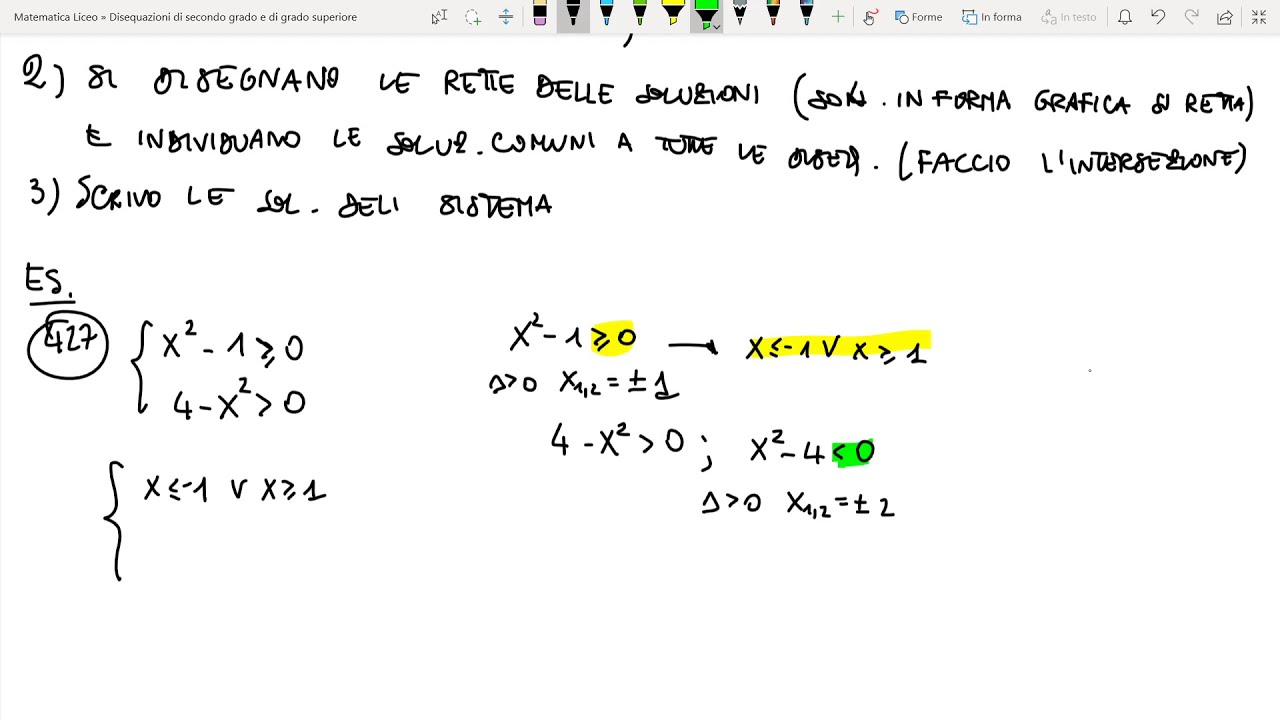 Matematica Liceo » Disequazioni di secondo grado e di grado superiore
Forme
In forma
In testo
2) SI DISEGNANO LE RETTE DELLE SOLUZIONI (SOLUZ. IN FORMA GRAFICA SU RETTA)
E INDIVIDUANO LE SOLUZ. COMUNI A TUTTE LE DISEQ. (FACCIO L'INTERSEZIONE)
3) SCRIVO LE SOL. DELI SISTEMA
ES.
427
x² - 1 ≥ 0
4 - x² > 0
x ≤ -1 ∨ x ≥ 1
x² - 1 ≥ 0 → x ≤ -1 ∨ x ≥ 1
Δ > 0 x₁,₂ = ± 1
4 - x² > 0 ; x² - 4 < 0
Δ > 0 x₁,₂ = ± 2